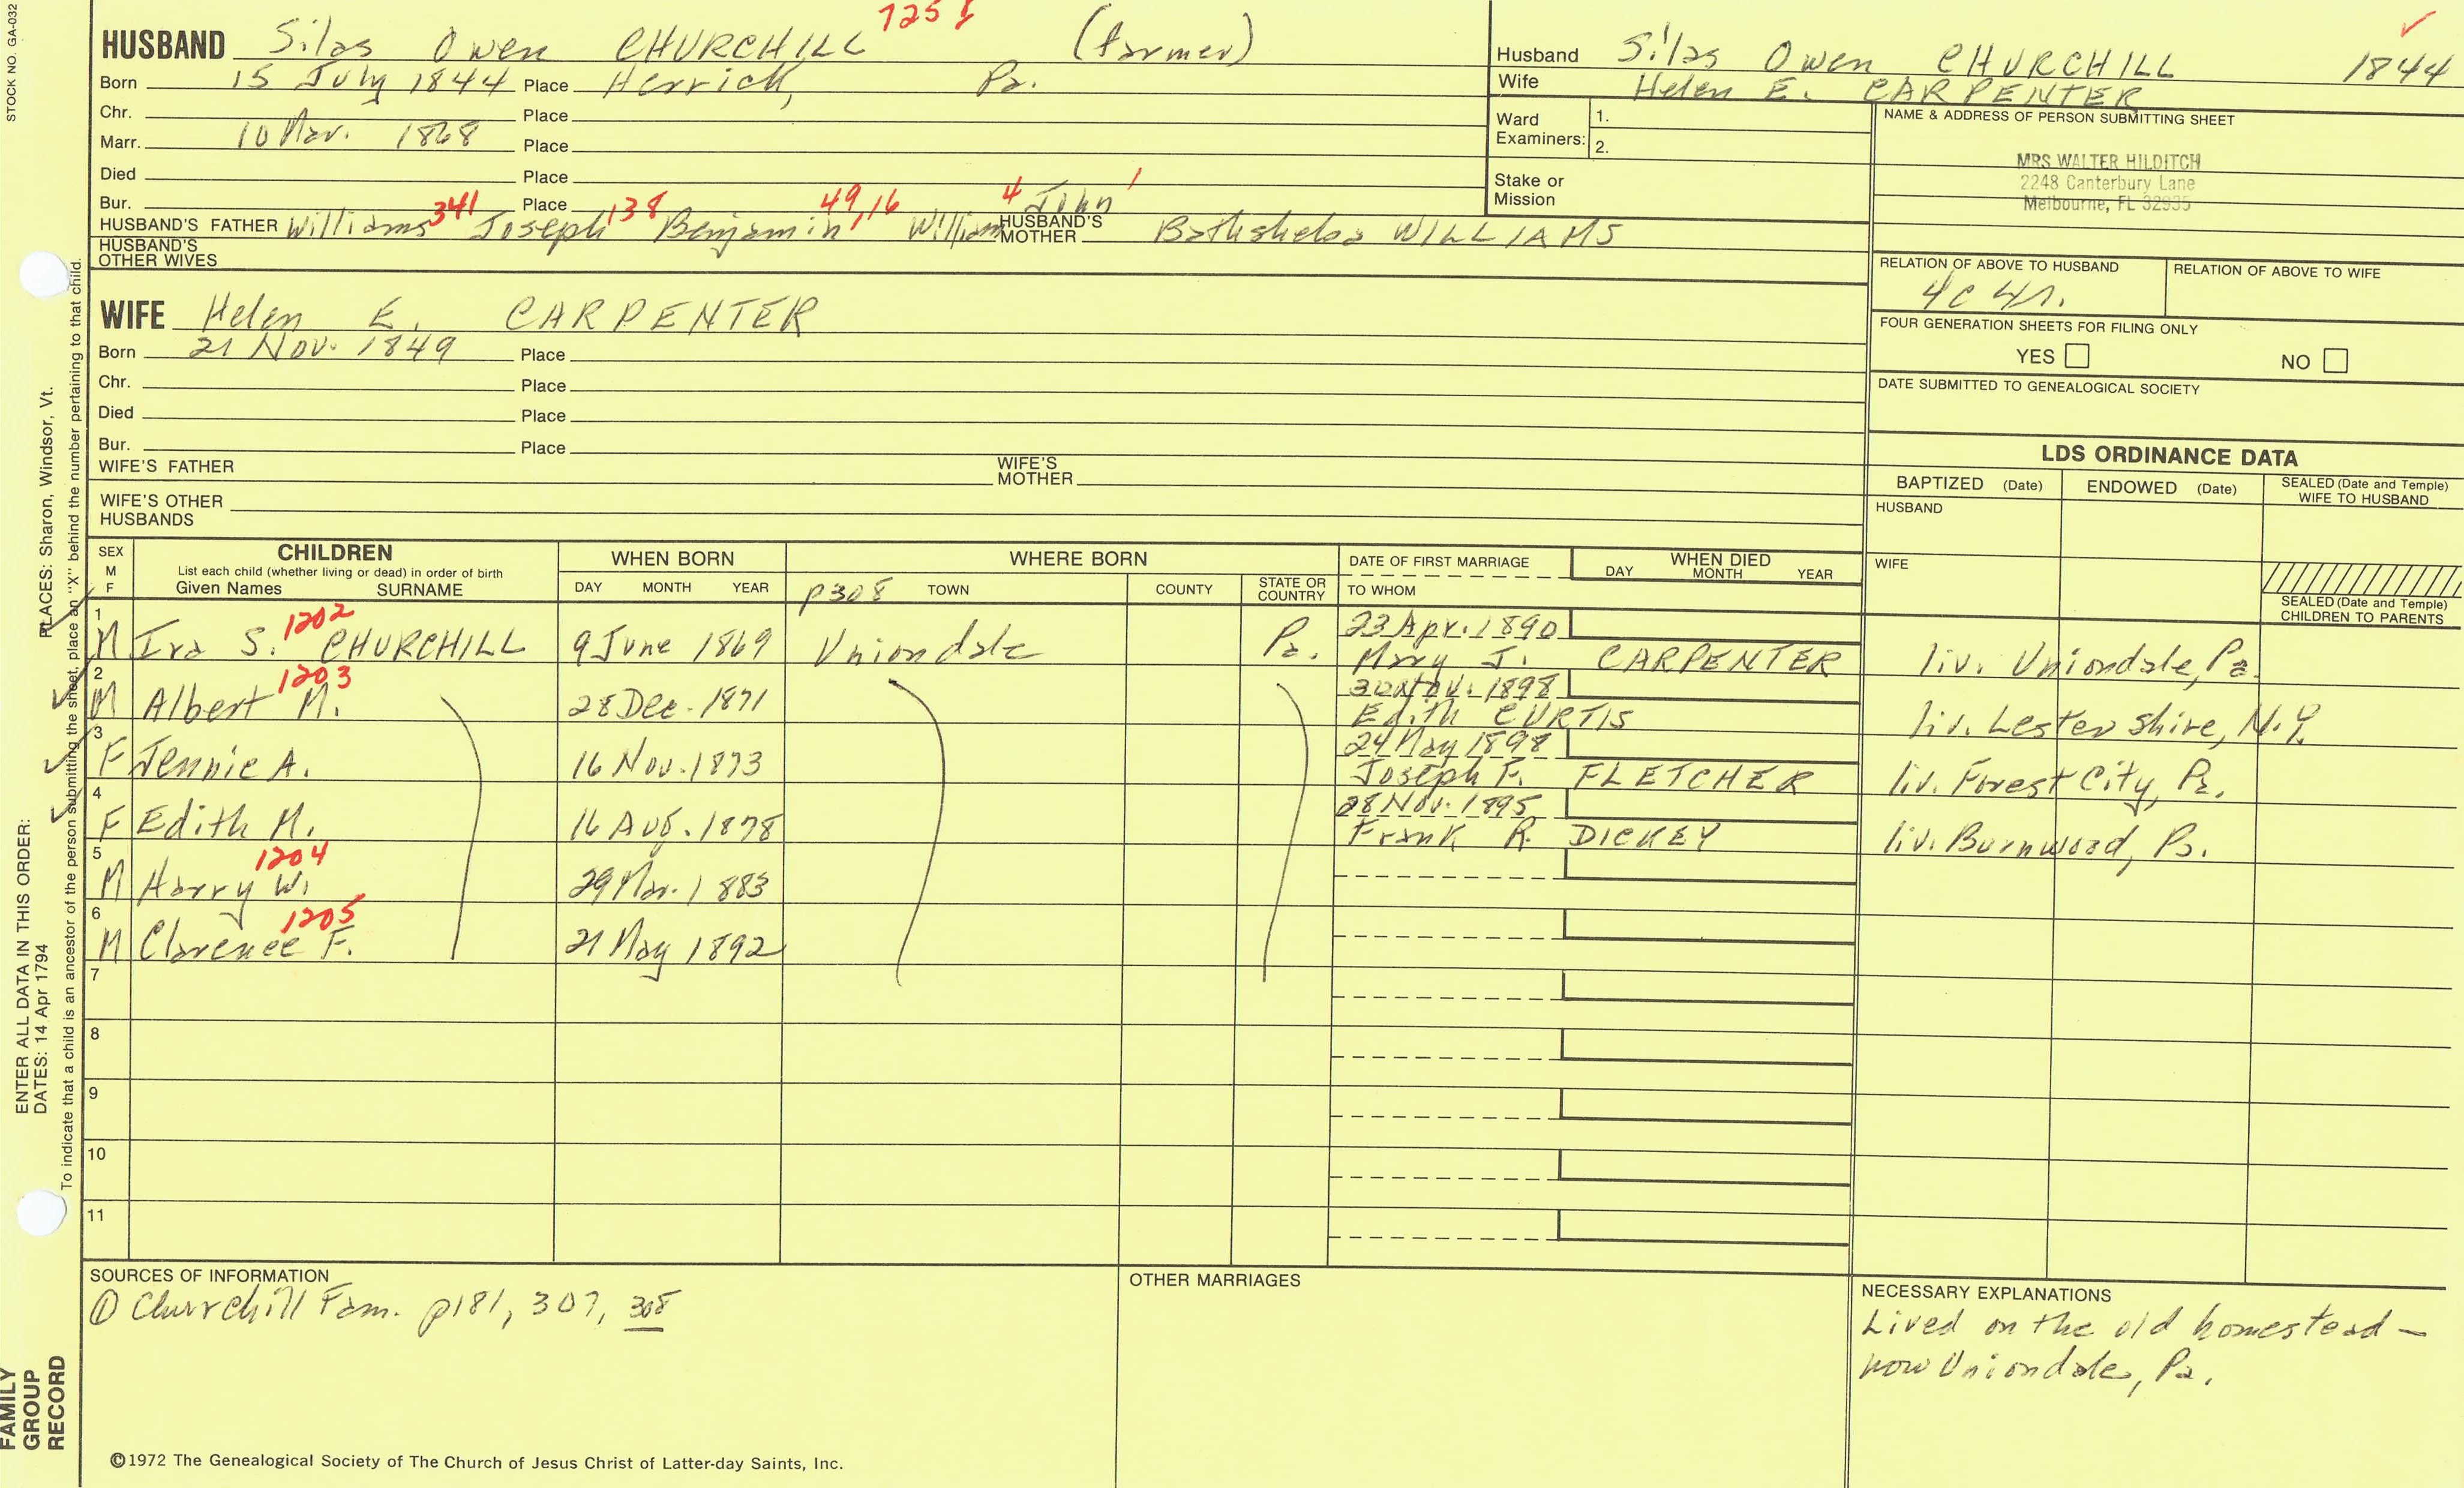 STOCK NO. GA-032
HUSBAND Silas Owen CHURCHILL 725 (farmer)
Born 15 July 1844 Place Herrick, Pa.
Chr. Place
Marr. 10 Mar. 1868 Place
Died Place
Bur. Place
HUSBAND'S FATHER Williams 341 Joseph 138 Benjamin 49, 16 William 4 John 1 HUSBAND'S MOTHER Bathsheba WILLIAMS
HUSBAND'S OTHER WIVES
WIFE Helen E. CARPENTER
Born 21 Nov. 1849 Place
Chr. Place
Died Place
Bur. Place
WIFE'S FATHER WIFE'S MOTHER
WIFE'S OTHER HUSBANDS
Husband Silas Owen CHURCHILL 1844
Wife Helen E. CARPENTER
Ward Examiners: 1. 2.
Stake or Mission
NAME & ADDRESS OF PERSON SUBMITTING SHEET
MRS WALTER HILDITCH
2248 Canterbury Lane
Melbourne, FL 32935
RELATION OF ABOVE TO HUSBAND RELATION OF ABOVE TO WIFE
4C 4r.
FOUR GENERATION SHEETS FOR FILING ONLY
YES NO
DATE SUBMITTED TO GENEALOGICAL SOCIETY
LDS ORDINANCE DATA
BAPTIZED (Date) ENDOWED (Date) SEALED (Date and Temple) WIFE TO HUSBAND
HUSBAND
WIFE
SEALED (Date and Temple) CHILDREN TO PARENTS
SEX M F
CHILDREN
List each child (whether living or dead) in order of birth
Given Names SURNAME
WHEN BORN
DAY MONTH YEAR
WHERE BORN
p308 TOWN COUNTY STATE OR COUNTRY
DATE OF FIRST MARRIAGE
TO WHOM
WHEN DIED
DAY MONTH YEAR
1 M Ira S. 1202 CHURCHILL 9 June 1869 Uniondale Pa. 23 Apr. 1890 Mary J. CARPENTER liv. Uniondale, Pa.
2 M Albert M. 1203 28 Dec. 1871 Nov. 1898 Edith CURTIS liv. Lestershire, N.Y.
3 F Jennie A. 16 Nov. 1873 24 May 1898 Joseph F. FLETCHER liv. Forest City, Pa.
4 F Edith M. 16 Aug. 1878 28 Nov. 1895 Frank R. DICKEY liv. Burnwood, Pa.
5 M Harry W. 1204 29 Mar. 1883
6 M Clarence F. 1205 21 May 1892
7
8
9
10
11
SOURCES OF INFORMATION
① Churchill Fam. p181, 307, 308
OTHER MARRIAGES
NECESSARY EXPLANATIONS
Lived on the old homestead —
now Uniondale, Pa.
©1972 The Genealogical Society of The Church of Jesus Christ of Latter-day Saints, Inc.
FAMILY GROUP RECORD
ENTER ALL DATA IN THIS ORDER:
DATES: 14 Apr 1794
PLACES: Sharon, Windsor, Vt.
To indicate that a child is an ancestor of the person submitting the sheet, place an "X" behind the number pertaining to that child.